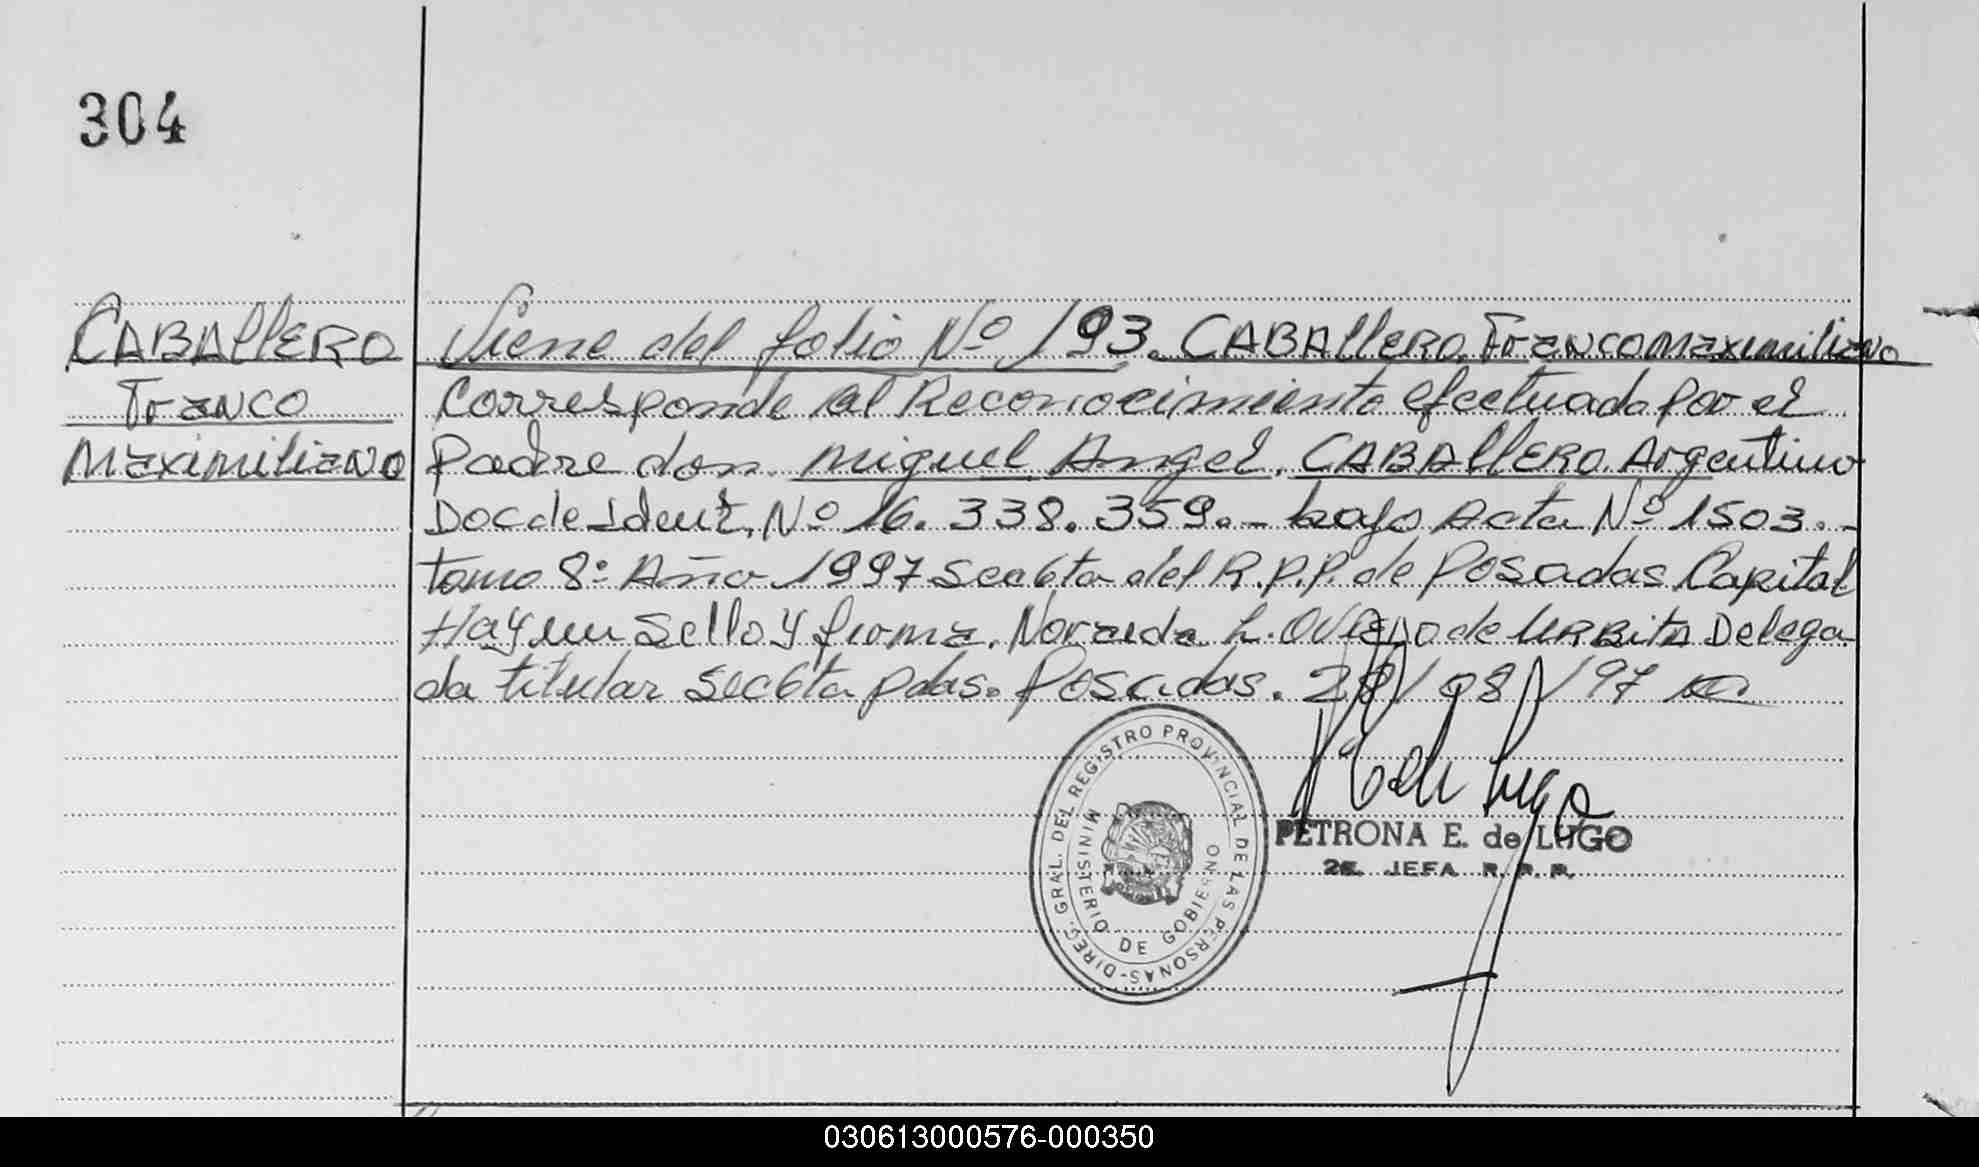 304
CABAllERO
Franco
Maximiliano
Viene del folio Nº 193. CABAllERO, Franco Maximiliano
Corresponde al Reconocimiento efectuado por el
padre don. Miguel Angel, CABAllERO. Argentino
Doc de Ident. Nº 16.338.359.- bajo Acta Nº 1503.-
tomo 8º Año 1997 Sec 6ta del R.P.P. de Posadas Capital
Hay un Sello y firma. Noraida L. OVIEDO de URBITA Delega
da titular Sec 6ta pdas. Posadas. 28/08/97
DIREC. GRAL. DEL REGISTRO PROVINCIAL DE LAS PERSONAS-
MINISTERIO DE GOBIERNO
PETRONA E. de LUGO
JEFA R. P. P.
030613000576-000350